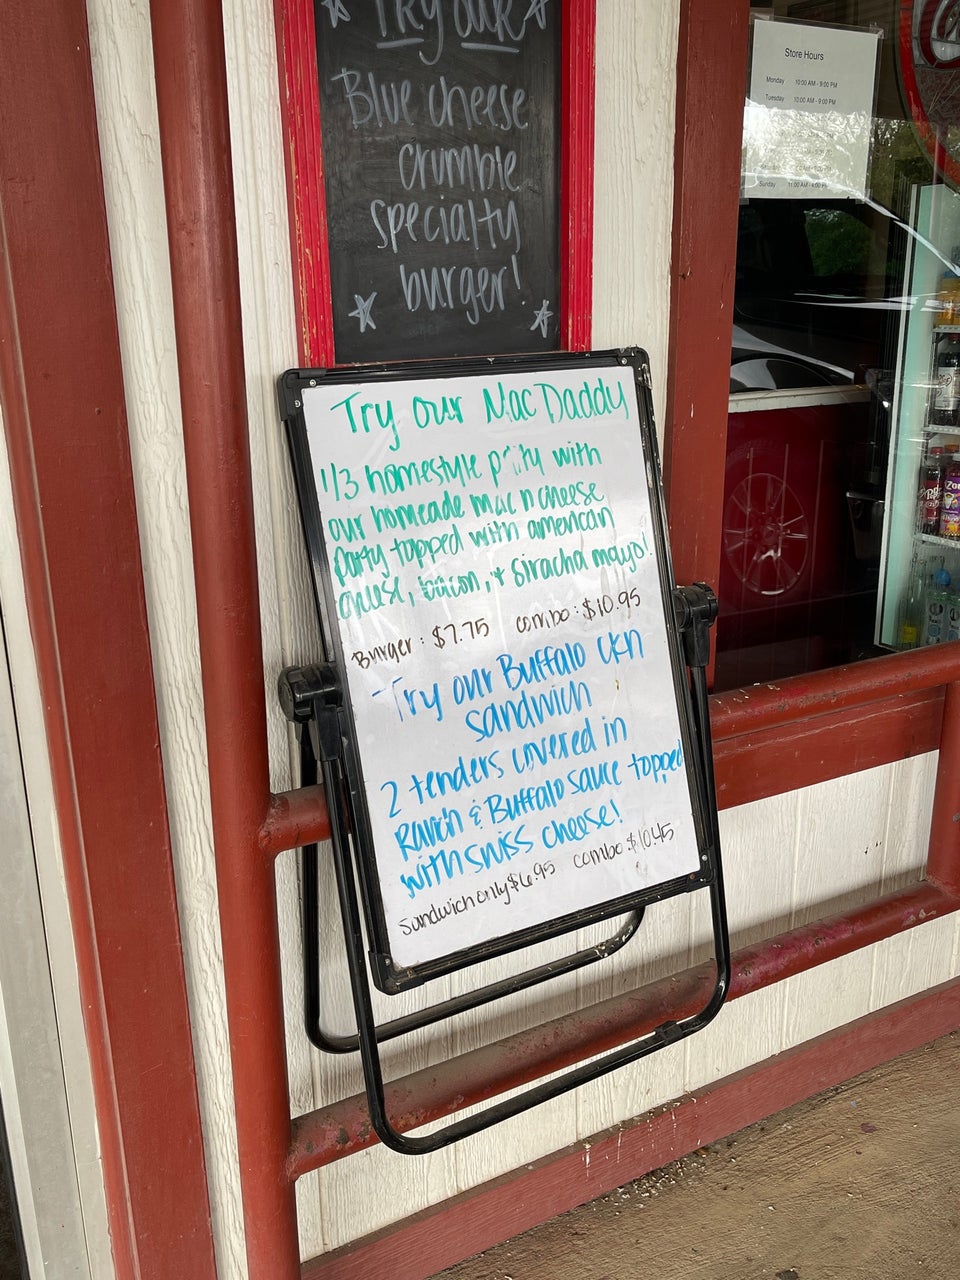 Try our
Blue cheese
crumble
specialty
burger!
Try our Mac Daddy
1/3 homestyle patty with
our homeade mac n cheese
patty topped with american
cheese, bacon, + siracha mayo!
Burger: $7.75 combo: $10.95
Try our Buffalo ckn
sandwich
2 tenders covered in
Ranch & Buffalo sauce topped
with swiss cheese!
sandwich only $6.95 combo $10.45
Store Hours
Monday 10:00 AM - 9:00 PM
Tuesday 10:00 AM - 9:00 PM
Sunday 11:00 AM